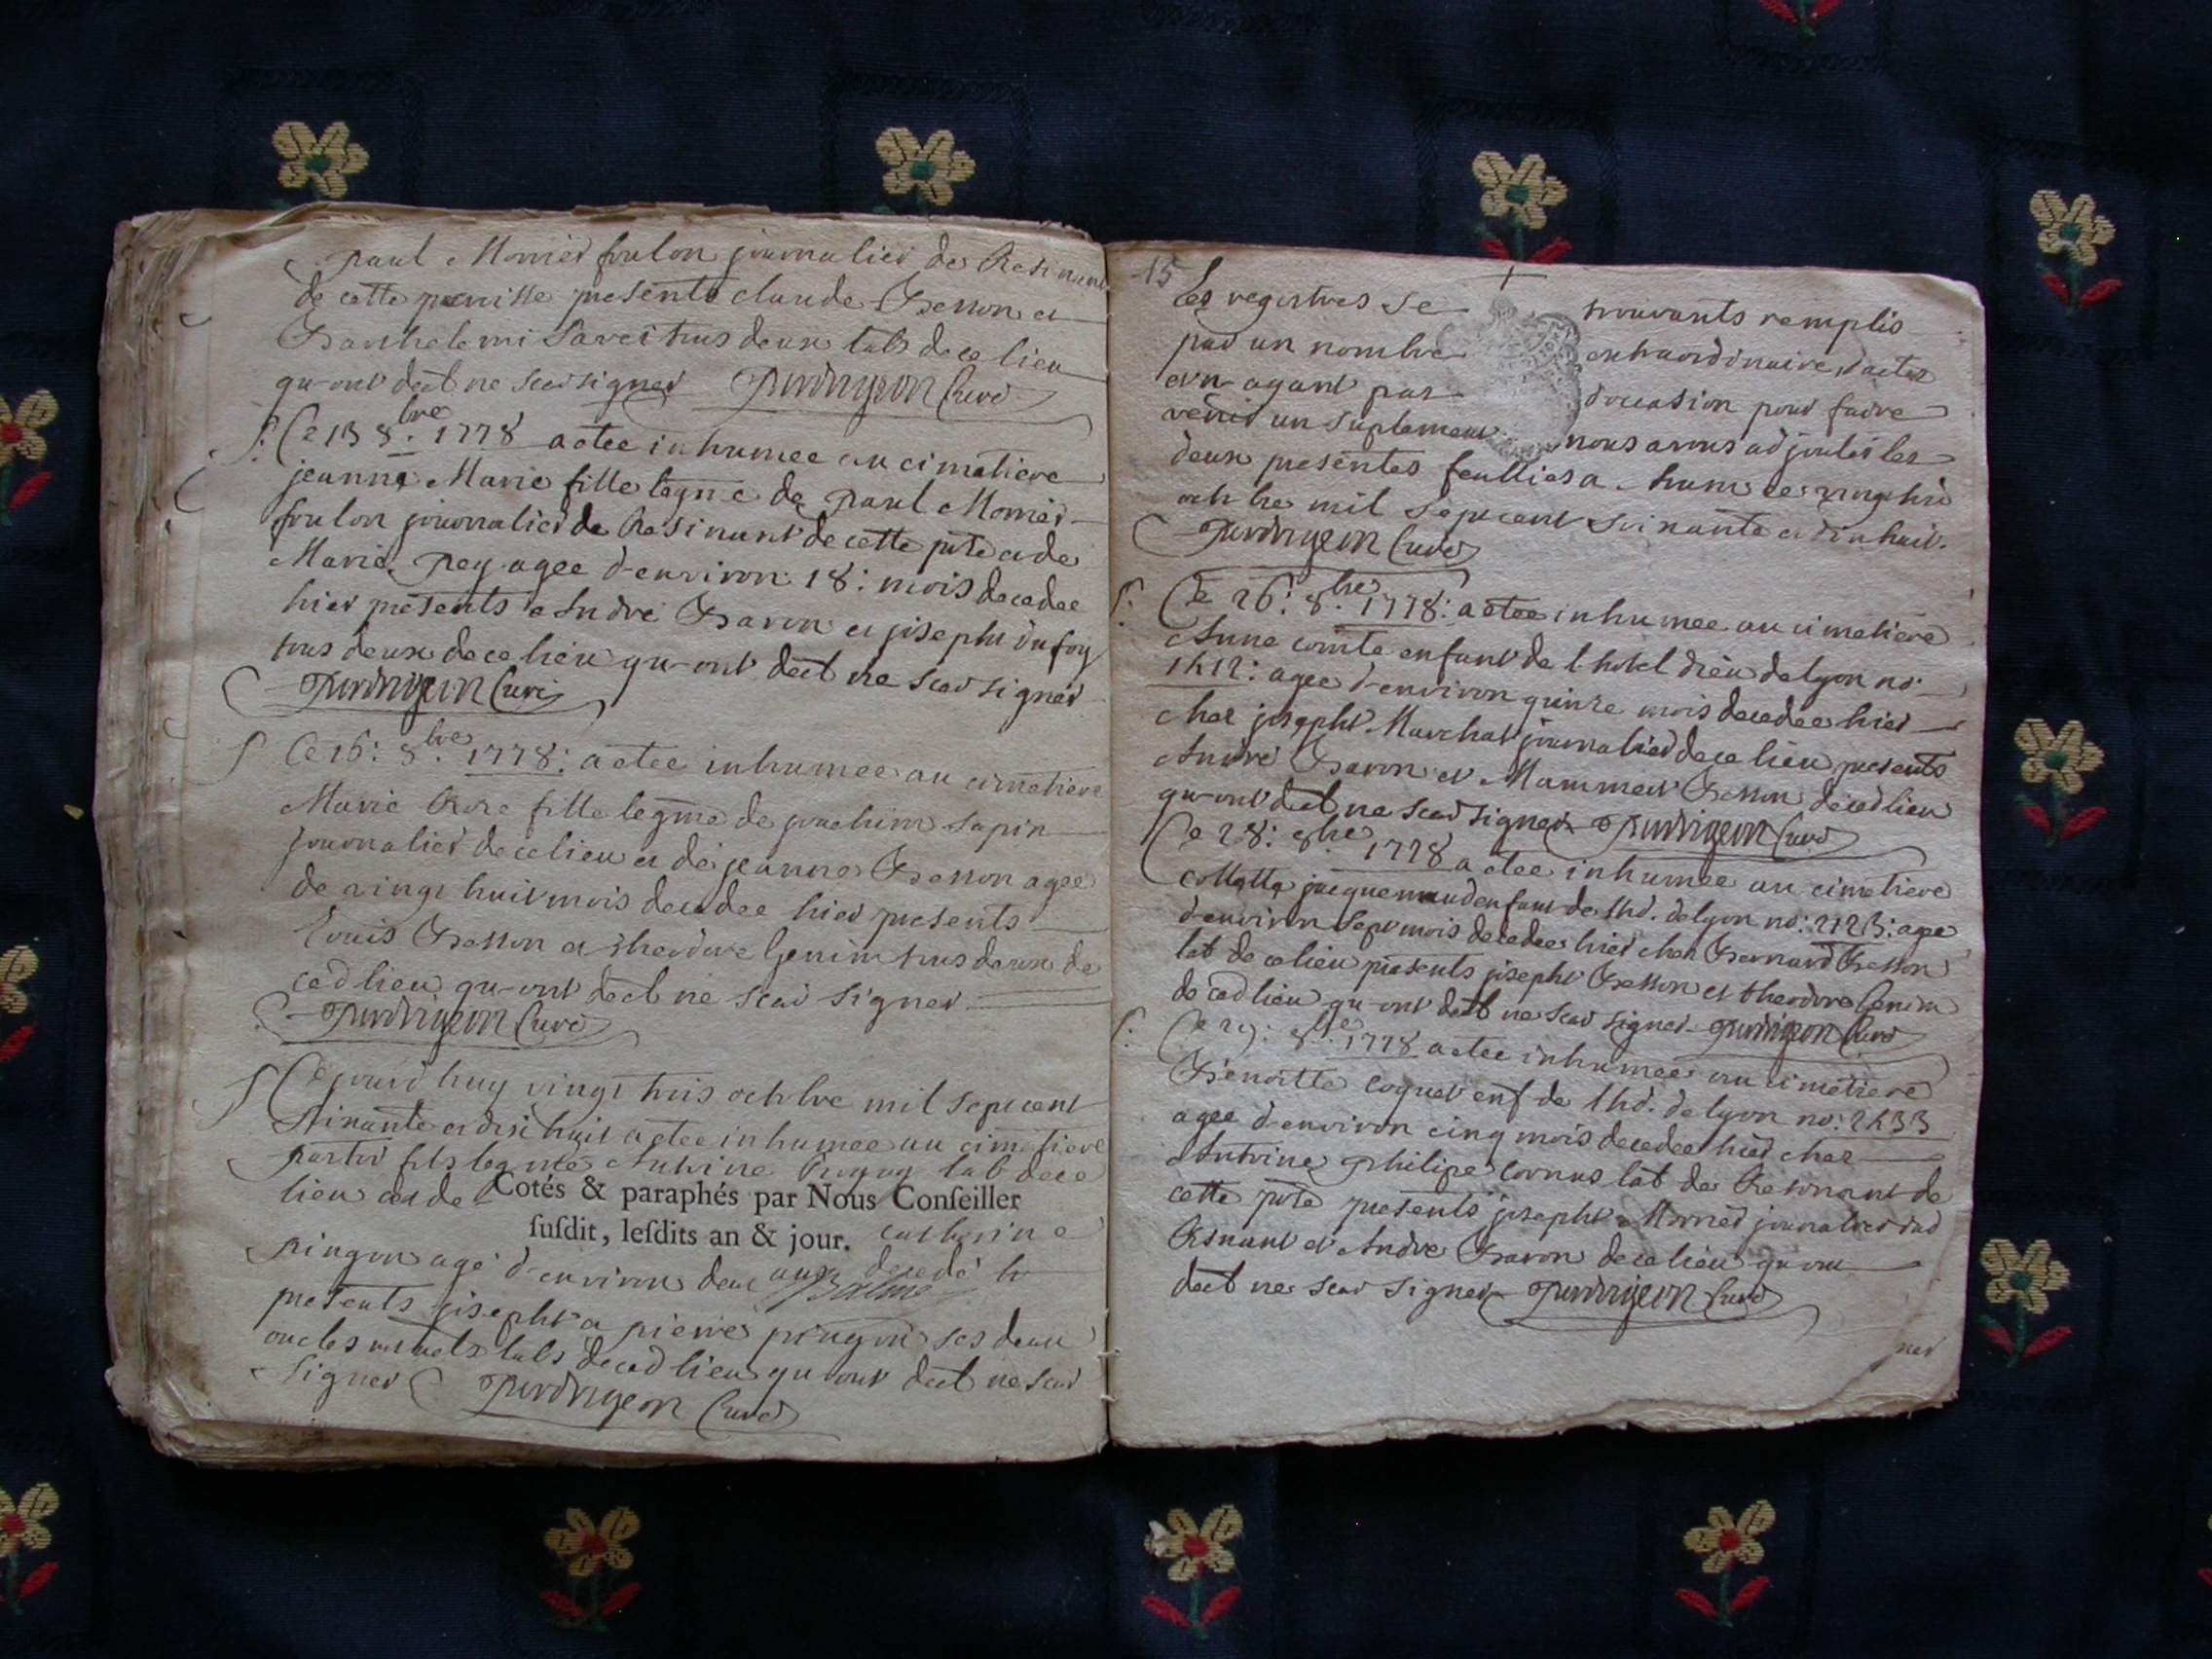 paul Monier foulon journalier de Resinant
de cette paroisse presents claude Besson et
Barthelemi tous deux labs de ce lieu
qu-ont declt ne scav signer Curé
S. Ce 13 8.bre 1778 a etee inhumee au cimetiere
jeanne Marie fille legme de paul Monier
foulon journalier de Resinant de cette psse et de
Marie Rey agee d-environ 18: mois decedee
hier presents Andre Baron et joseph Dufoy
tous deux de ce lieu qu-ont declt ne scav signer
Curé
S Ce 16: 8.bre 1778: a etee inhumee au cimetiere
Marie Rose fille legme de joachim Sapin
journalier de ce lieu et de jeanne Besson agee
de vingt huit mois decedee hier presents
Louis Besson et theodore Genim tous deux de
ced lieu qu-ont declt ne scav signer
Curé
S Ce jourd huy vingt trois octobre mil sept cent
soixante et dix huit a etee inhumee au cimetiere
fils legme Antoine lab de ce
lieu et de Cotés & paraphés par Nous Conseiller
susdit, lesdits an & jour. catherine
pingon agé d-environ deux ans decedé
presents joseph et pierre pingon ses deux
oncles labs de ced lieu qu-ont declt ne scav
signer Curé
15 Les registres se trouvants remplis
par un nombre extraordinaire d'actes
et n-ayant pas d'occasion pour faire
venir un suplement nous avons adjoutés les
deux presentes feullies a ce vingt
octobre mil sept cent soixante et dix huit.
Curé
S. Ce 26: 8.bre 1778: a etee inhumee au cimetiere
Anne comte enfant de l hotel dieu de lyon no:
1412: agee d-environ quinze mois decedee hier
chez joseph Marchat journalier de ce lieu presents
Andre Baron et Mammert Besson de ced lieu
qu-ont declt ne scav signer Curé
Ce 28: 8bre 1778 a etee inhumee au cimetiere
Collette jacquemaud enfant de lhd. de lyon no: 2123: agee
d-environ sept mois decedee hier chez Bernard Besson
lab de ce lieu presents joseph Besson et theodore Genim
de ced lieu qu-ont declt ne scav signer Curé
S. Ce 29: 8.bre 1778 a etee inhumee au cimetiere
Benoitte Coquet enf de lhd. de lyon no: 2433
agee d-environ cinq mois decedee hier chez
Antoine philipe Cornus lab de Resinant de
cette psse presents joseph Monier journalier dud
Resinant et Andre Baron de ce lieu qu ont
declt ne scav signer Curé